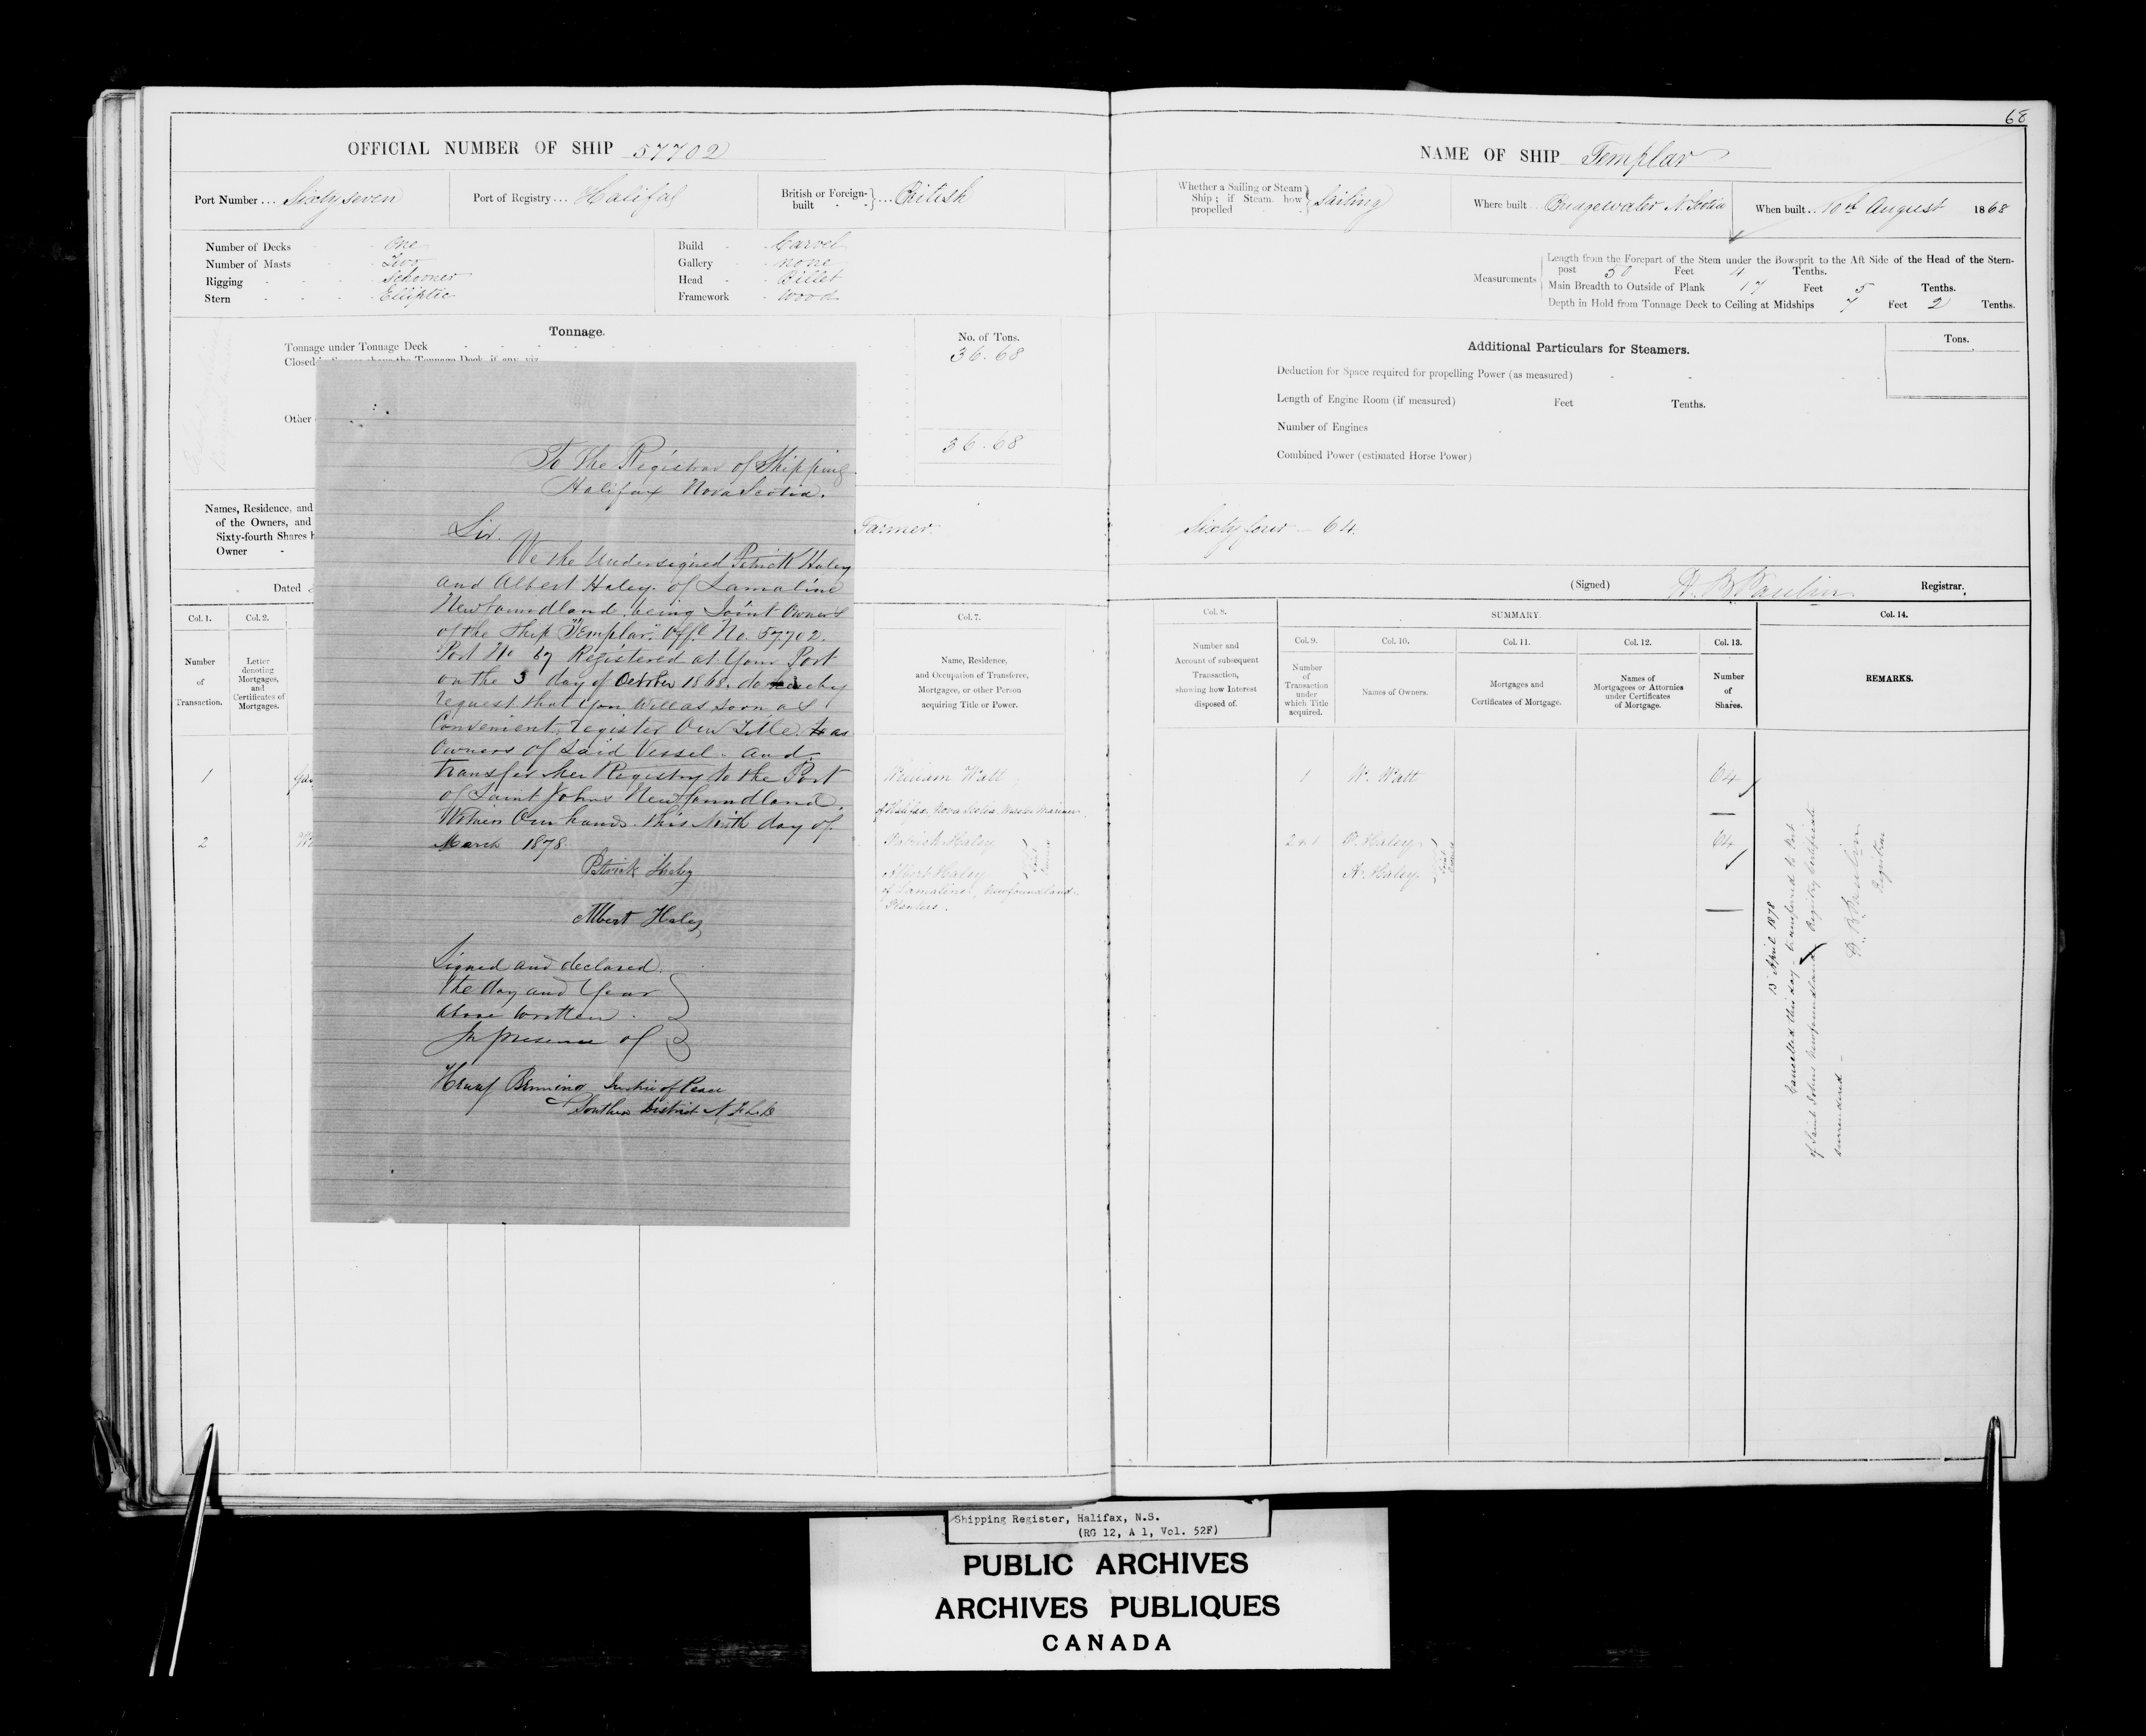 68
OFFICIAL NUMBER OF SHIP 57702
Port Number ... Sixty seven
Port of Registry ... Halifax
British or Foreign-built ... British
Number of Decks - One
Number of Masts - Two
Rigging - Schooner
Stern - Elliptic
Build - Carvel
Gallery - none
Head - Billet
Framework - Wood
Tonnage.
No. of Tons.
Tonnage under Tonnage Deck 36.68
Closed
Other
36.68
Names, Residence, and
of the Owners, and
Sixty-fourth Shares
Owner -
Farmer
Dated
To The Registrar of Shipping
Halifax Nova Scotia.
Sir.
We the Undersigned Patrick Haley
and Albert Haley of Lamaline
Newfoundland being Joint Owners
of the Ship "Templar" Offl No. 57702.
Port No 67 Registered at Your Port
on the 3 day of October 1868. do hereby
request that You Will as soon as
Convenient register Our Title as
Owners of Said Vessel. and
transfer her Registry to the Port
of Saint Johns Newfoundland.
Witness Our hands this Ninth day of
March 1878.
Patrick Haley
Albert Haley
Signed and declared
the day and Year
above written.
In presence of
Henry Benning Justice of Peace
Southern District N.F.L.D
Col. 1.
Number
of
Transaction.
Col. 2.
Letter
denoting
Mortgages,
and
Certificates of
Mortgages.
Col. 7.
Name, Residence,
and Occupation of Transferee,
Mortgagee, or other Person
acquiring Title or Power.
1
William Watt
of Halifax Nova Scotia Master Mariner.
2
Patrick Haley
Albert Haley
Joint Owners
of Lamaline, Newfoundland
Planters.
NAME OF SHIP Templar
Whether a Sailing or Steam
Ship; if Steam, how
propelled
Sailing
Where built ... Bridgewater N. Scotia
When built ... 10th August 1868
Measurements
Length from the Forepart of the Stem under the Bowsprit to the Aft Side of the Head of the Stern-
post 50 Feet 4 Tenths.
Main Breadth to Outside of Plank 17 Feet 5 Tenths.
Depth in Hold from Tonnage Deck to Ceiling at Midships 7 Feet 2 Tenths.
Additional Particulars for Steamers.
Tons.
Deduction for Space required for propelling Power (as measured)
Length of Engine Room (if measured) Feet Tenths.
Number of Engines
Combined Power (estimated Horse Power)
Sixty four - 64.
(Signed) Registrar.
Col. 8.
Number and
Account of subsequent
Transaction,
showing how Interest
disposed of.
SUMMARY.
Col. 9.
Number
of
Transaction
under
which Title
acquired.
Col. 10.
Names of Owners.
Col. 11.
Mortgages and
Certificates of Mortgage.
Col. 12.
Names of
Mortgagees or Attornies
under Certificates
of Mortgage.
Col. 13.
Number
of
Shares.
Col. 14.
REMARKS.
1 W. Watt 64
2 & 1 P. Haley
A. Haley
Joint Owners
64
13 April 1878
Cancelled this day - transferred to Port
of Saint Johns Newfoundland Registry Certificate
surrendered -
Registrar
Shipping Register, Halifax, N.S.
(RG 12, A 1, Vol. 52F)
PUBLIC ARCHIVES
ARCHIVES PUBLIQUES
CANADA